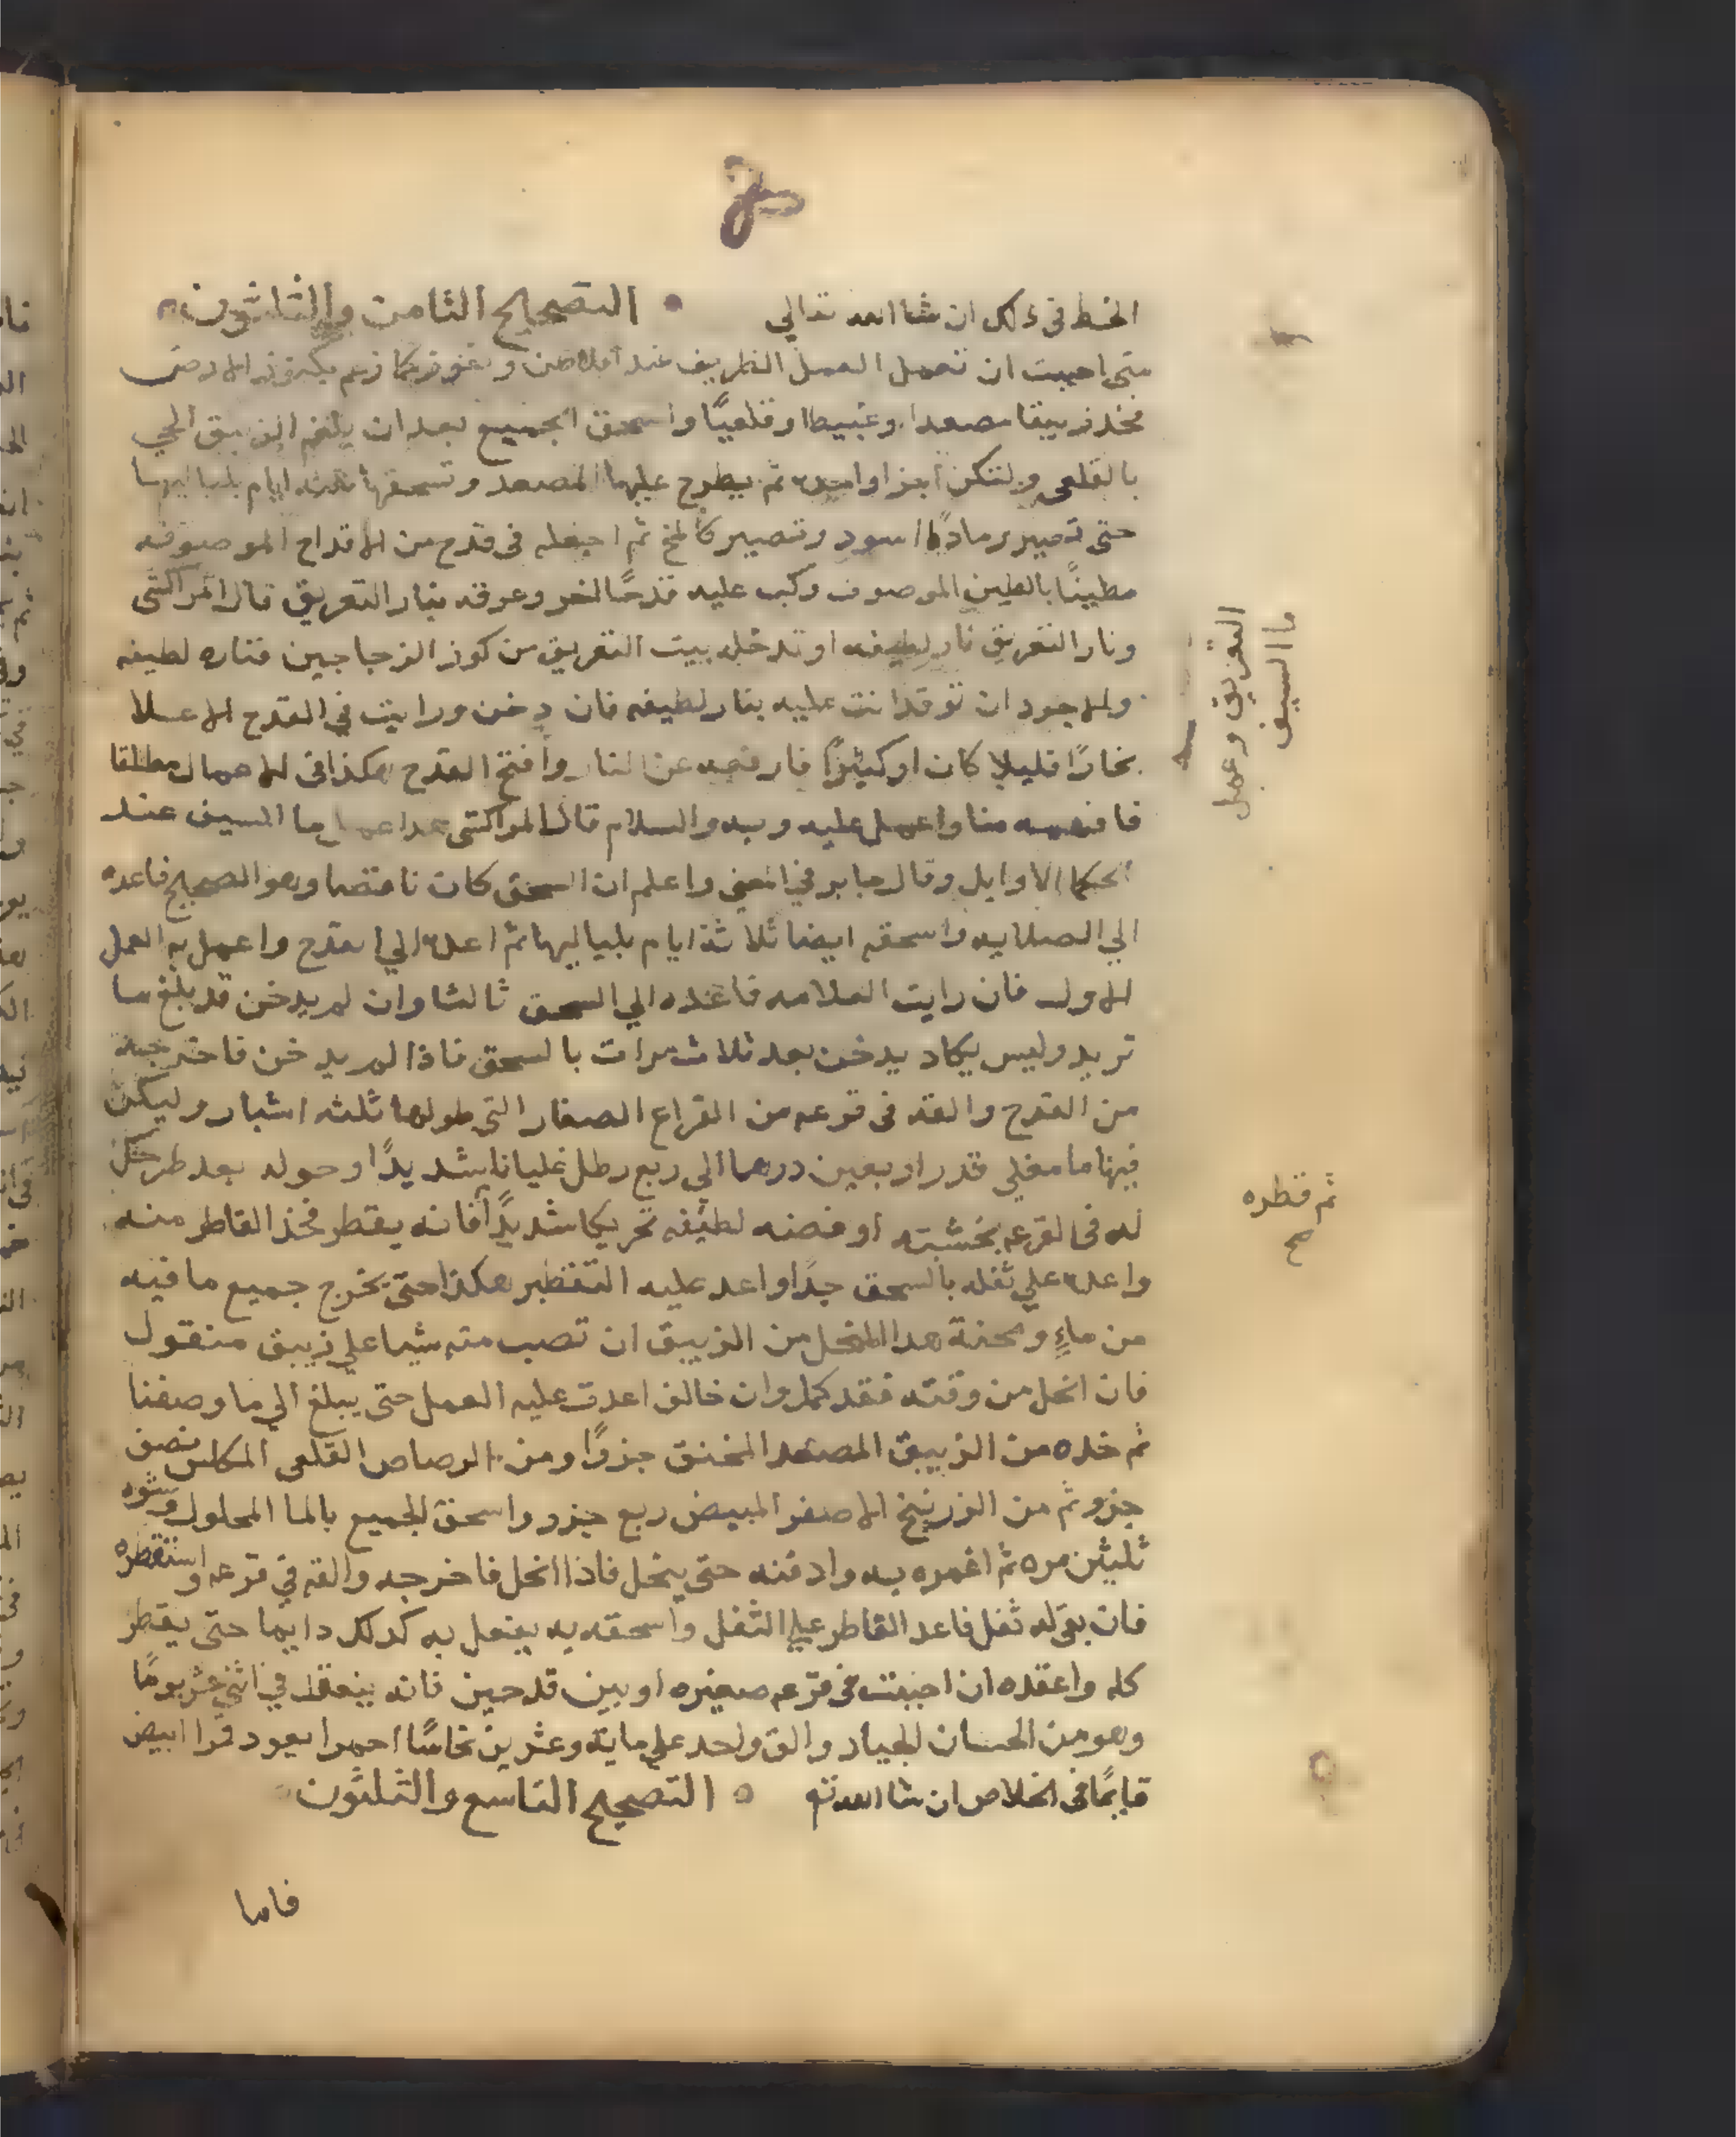 الخط في ذلك ان شا الله تعالي • التصحيح الثامن والثلثون
متى احببت ان تعمل العمل الظريف عند افلاطن و
فخذ زيبقا مصعدا وعبيطا وقلعيًا واسحق الجميع بعد ان يلغم الزيبق الحي
بالقلعي ولتكن اجزا واحده ثم يطرح عليها المصعد وتسحقها ثلثه ايام بلياليها
حتى تصير رمادًا اسود وتصير كالمخ ثم اجعله في قدح من الاقداح الموصوفه
مطينًا بالطين الموصوف وكب عليه قدحًا اخر وعرقه بنار التعريق قال المراكشي
ونار التعريق نار لطيفه او تدخله بيت التعريق من كوز الزجاجين فناره لطيفه
والاجود ان توقد انت عليه بنار لطيفه فان دخن ورايت في القدح الاعلا
بخارًا قليلا كان او كثيرًا فارفعه عن النار وافتح القدح هكذا في الاعمال مطلقا
فافهمه منا واعمل عليه وبه والسلام قال المراكشي هدا عمل ما السيف عند
الحكما الاوايل وقال جابر في المعنى واعلم ان السحق كان ناقصا وهو الصحيح فاعده
الي الصلايه واسحقه ايضا ثلاثة ايام بلياليها ثم اعده الي القدح واعمل به العمل
الاول فان رايت العلامه فاعده الي السحق ثالثا وان لم يدخن قد بلغ ما
تريد وليس يكاد يدخن بعد ثلاث مرات بالسحق فاذا لم يدخن فاخرجه
من القدح والقه في قرعه من القراع الصغار التي طولها ثلثه اشبار وليكن
فيها ما مغلي قدر اربعين درهما الي ربع رطل غليانا شديدًا وحوله بعد طرحك
له في القرعه بخشبته او فضه لطيفه تحريكا شديدًا فانه يقطر فخذ القاطر منه
واعده علي ثفله بالسحق جدًا واعد عليه التقطير هكذا حتى يخرج جميع ما فيه
من ماءٍ ومحنة هدا المنحل من الزيبق ان تصب منه شيا علي زيبق منقول
فان انحل من وقته فقد كمل وان خالف اعدت عليه العمل حتى يبلغ الي ما وصفنا
ثم خده من الزيبق المصعد المخنق جزوًا ومن الرصاص القلعي المكلس نصف
جزو ثم من الزرنيخ الاصفر المبيض ربع جزو واسحق الجميع بالما المحلول وشوه
ثلثين مره ثم اغمره به وادفنه حتى ينحل فاذا انحل فاخرجه والقه في قرعه واستقطره
فان بقي له ثفل فاعد القاطر علي الثفل واسحقه به يفعل به كدلك دايما حتى يقطر
كله واعقده ان احببت في قرعه صغيره او بين قدحين فانه ينعقد في اثني عشر يومًا
وهو من الحسان الجياد والق واحد علي ماية وعشرين نحاسًا احمرا يعود قمرا ابيض
قايمًا في الخلاص ان شا الله تع • التصحيح التاسع والثلثون
فاما
التعريق وعمل
ما السيف
ثم قطره
صح